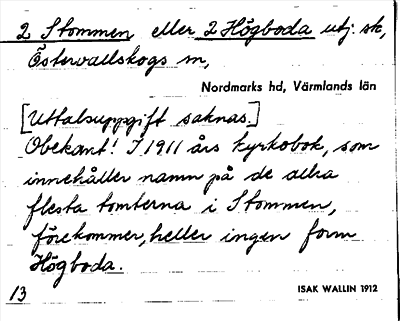 2 Stommen eller 2 Högboda utj. sk,
Östervallskogs sn,
Nordmarks hd, Värmlands län
[Uttalsuppgift saknas.]
Obekant! I 1911 års kyrkobok, som
innehåller namn på de allra
flesta tomterna i Stommen,
förekommer, heller ingen form
Högboda.
13
ISAK WALLIN 1912